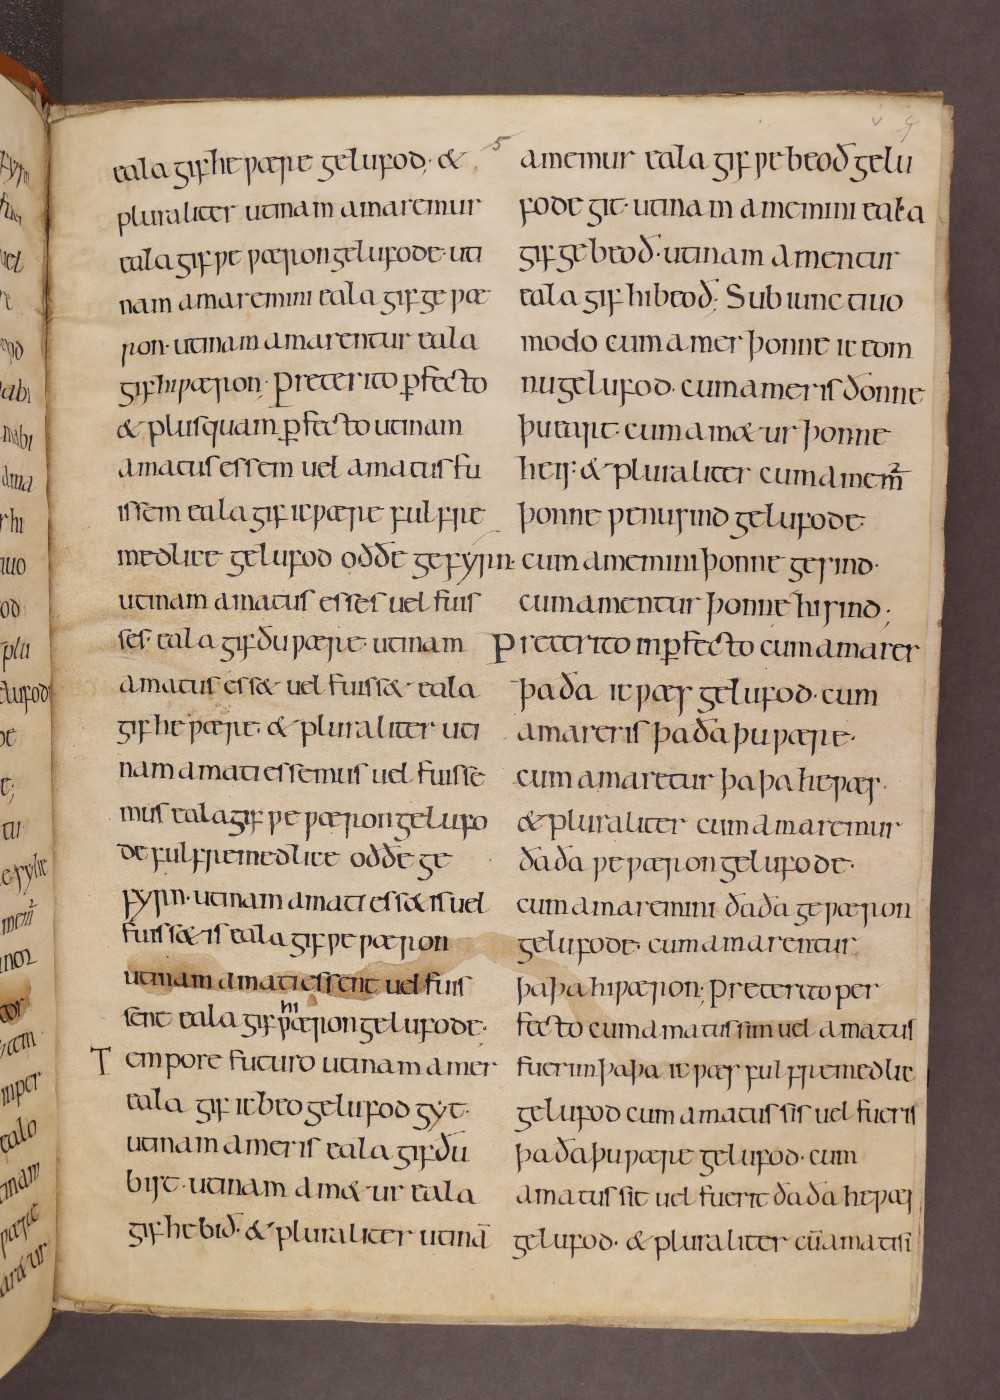 5
v 9
eala gif he ƿære gelufod· &
pluraliter utinam amaremur
eala gif ƿe ƿæron gelufode· uti
nam amaremini eala gif ge ƿæ
ron· utinam amarentur eala
gif hi ƿæron· Preterito ꝑfecto
& plusquam ꝑfecto utinam
amatus essem uel amatus fu
issem eala gif ic ƿære fulfre
medlice gelufod oððe gefyrn·
utinam amatus esses uel fuis
ses· eala gif ðu ƿære· utinam
amatus ess& uel fuiss& eala
gif he ƿære· & pluraliter uti
nam amati essemus uel fuisse
mus eala gif ƿe ƿæron gelufo
de fulfremedlice oððe ge
fyrn· utinam amati ess&is uel
fuiss&is eala gif ƿe ƿæron
utinam amati essent uel fuis
sent eala gif hi ƿæron gelufode·
Tempore futuro utinam amer
eala gif ic beo gelufod gyt·
utinam ameris eala gif ðu
bist· utinam am&ur eala
gif he bið· & pluraliter utinā
amemur eala gif ƿe beoð gelu
fode git· utinam amemini eala
gif ge beoð· utinam amentur
eala gif hi beoð; Subiunctiuo
modo cum amer þonne ic eom
nu gelufod· cum ameris ðonne
þu eart· cum am&ur þonne
he is: & pluraliter cum amem̄
þonne ƿe nu sind gelufode·
cum amemini þonne ge sind·
cum amentur þonne hi sind;
Preterito inꝑfecto cum amarer
þa ða ic ƿæs gelufod· cum
amareris þa ða þu ƿære·
cum amaretur þa þa he ƿæs·
& pluraliter cum amaremur
ða ða ƿe ƿæron gelufode·
cum amaremini ða ða ge ƿæron
gelufode· cum amarentur
þa þa hi ƿæron; Preterito per
fecto cum amatus sim uel amatus
fuerim þa þa ic ƿæs fulfremedlic
gelufod cum amatus sis uel fueris
þa ða þu ƿære gelufod· cum
amatus sit uel fuerit ða ða he ƿæs
gelufod· & pluraliter cū amati si